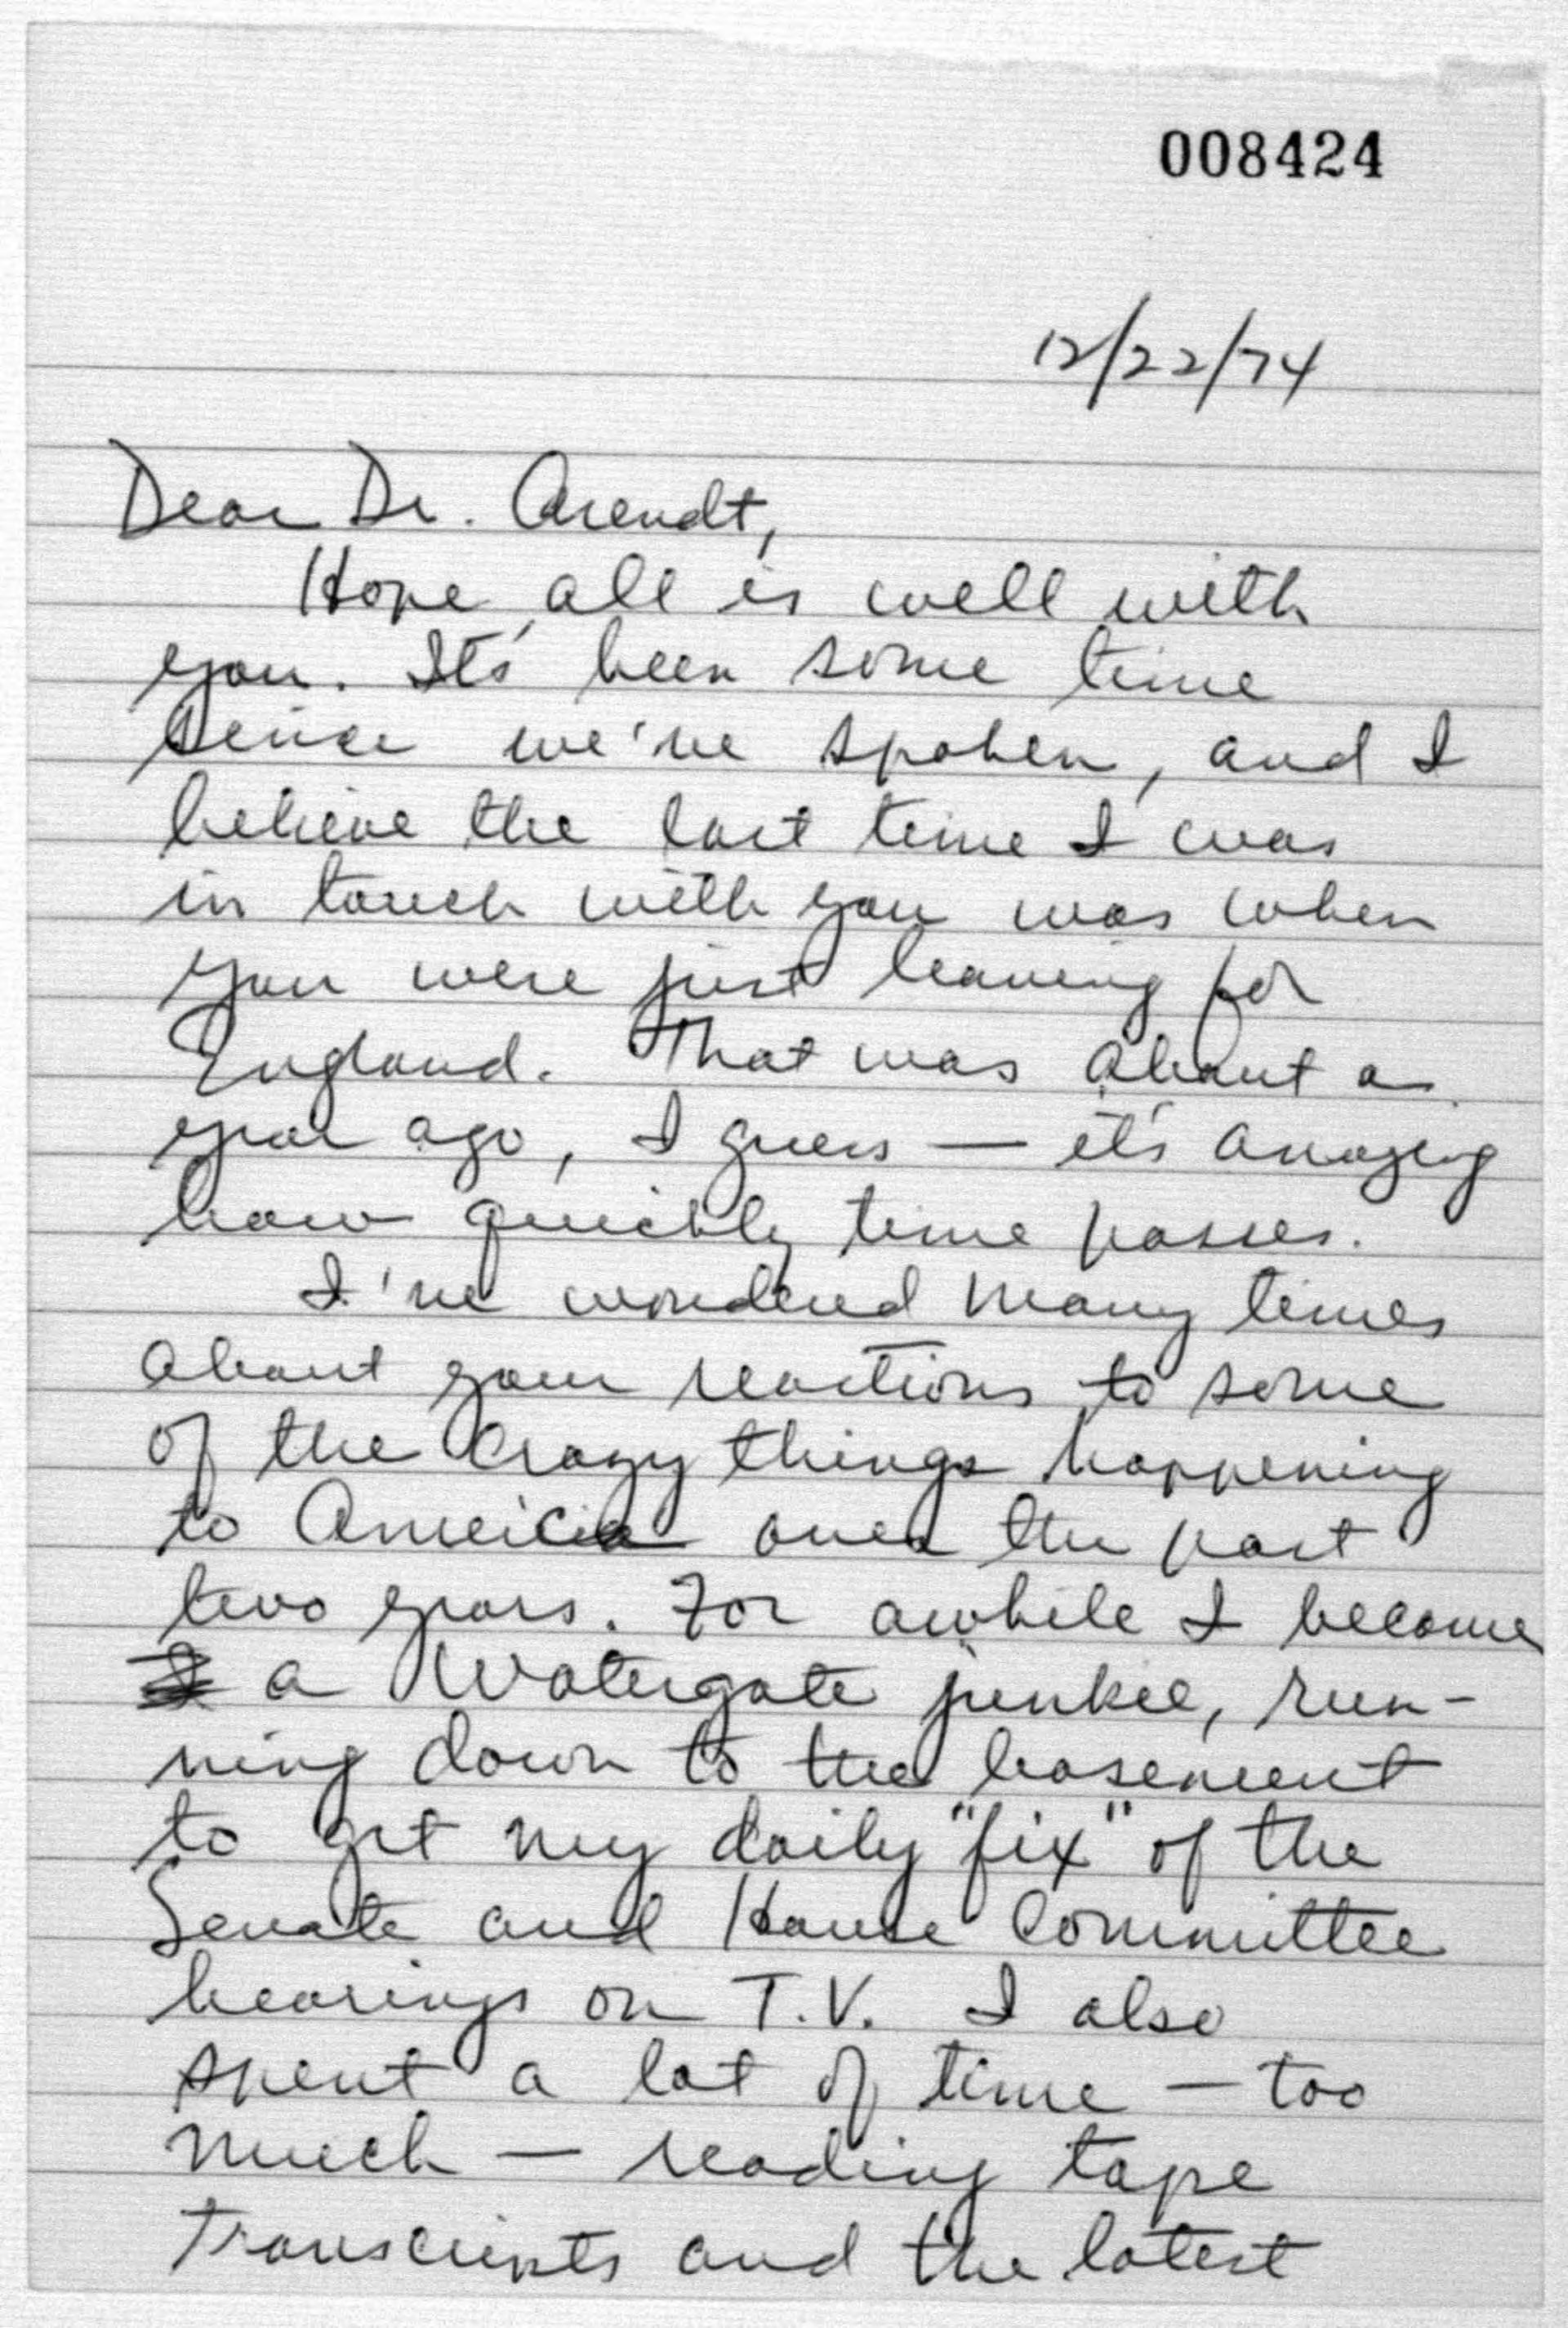 008424
12/22/74
Dear Dr. Arendt,
Hope all is well with
you. It's been some time
since we've spoken, and I
believe the last time I was
in touch with you was when
you were just leaving for
England. That was about a
year ago, I guess — it's amazing
how quickly time passes.
I've wondered many times
about your reactions to some
of the crazy things happening
to America over the past
two years. For awhile I became
a Watergate junkie, run-
ning down to the basement
to get my daily "fix" of the
Senate and House Committee
hearings on T.V. I also
spent a lot of time — too
much — reading tape
transcripts and the latest